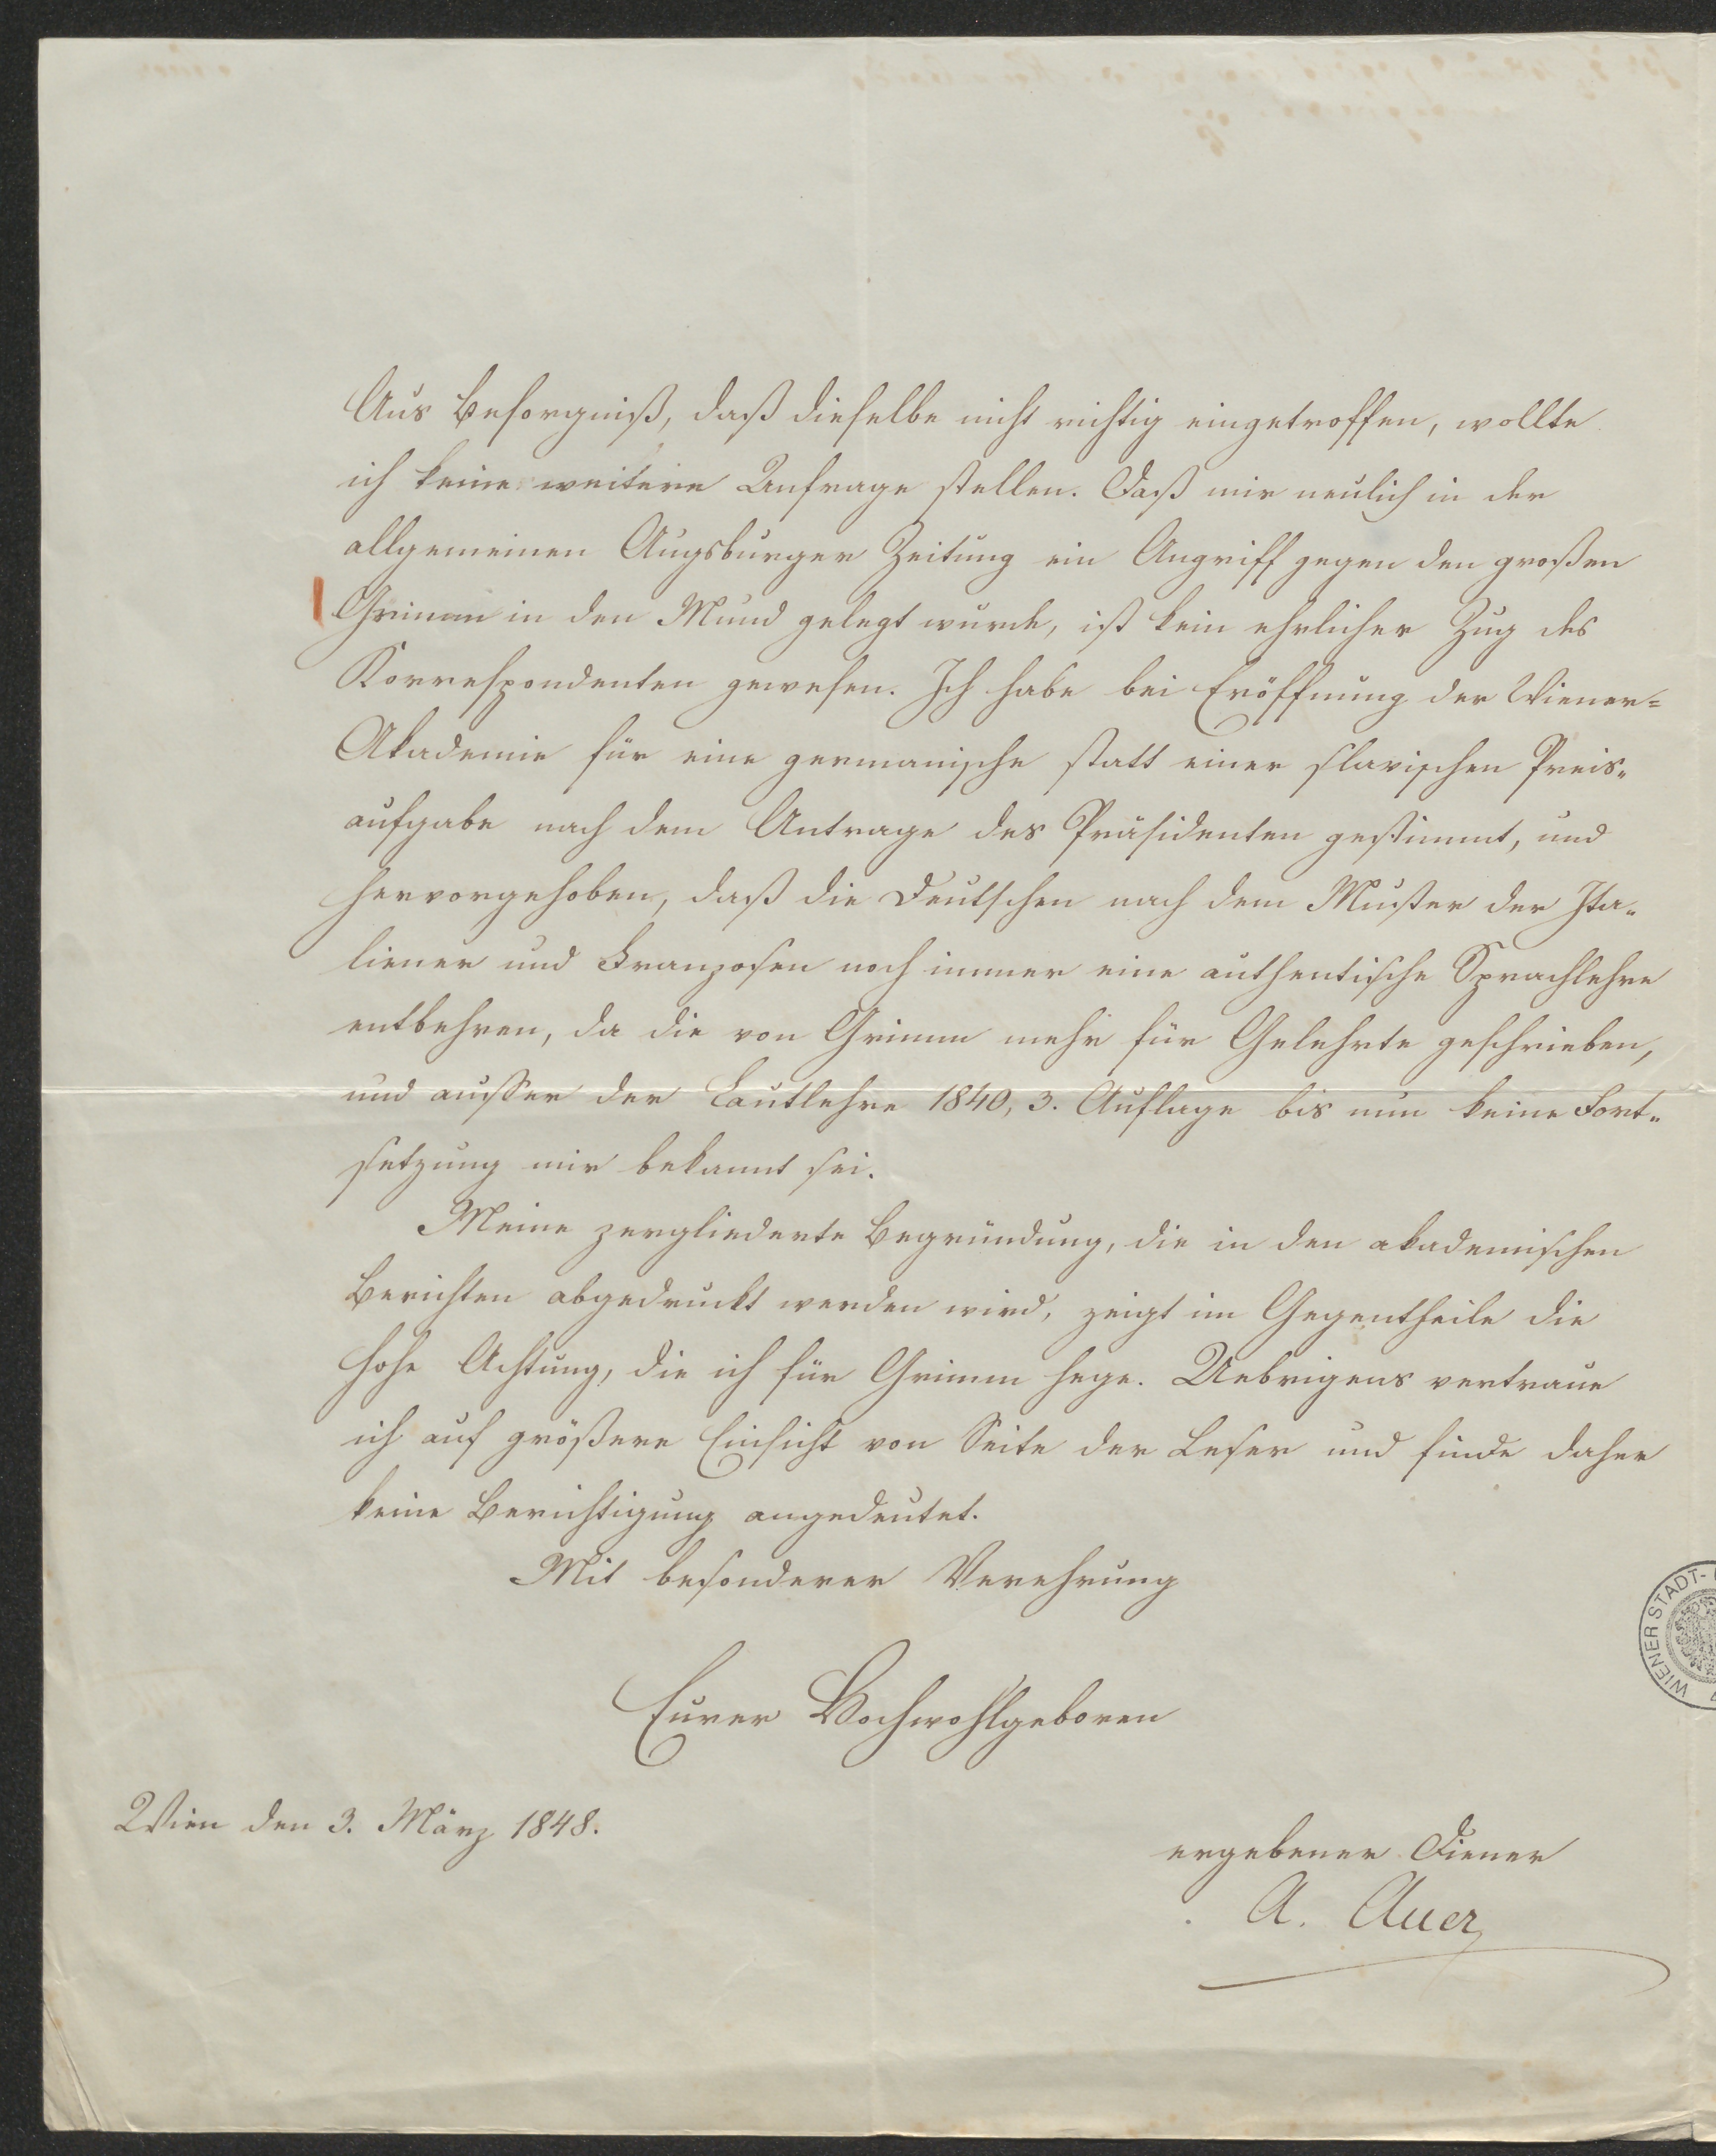 Aus Besorgniß, daß dieselbe nicht richtig eingetroffen, wollte
ich keine weitere Anfrage stellen. Daß mir neulich in der
allgemeinen Augsburger Zeitung ein Angriff gegen den großen
Grimm in den Mund gelegt wurde, ist kein ehrlicher Zug des
Korrespondenten gewesen. Ich habe bei Eröffnung der Wiener=
Akademie für eine germanische statt einer slavischen Preis=
aufgabe nach dem Antrage des Präsidenten gestimmt, und
hervorgehoben, daß die Deutschen nach dem Muster der Ita=
liener und Franzosen noch immer eine authentische Sprachlehre
entbehren, da die von Grimm mehr für Gelehrte geschrieben,
und ausser der Lautlehre 1840, 3. Auflage bis nun keine Fort=
setzung mir bekannt sei.
Meine zergliederte Begründung, die in den akademischen
Berichten abgedruckt werden wird, zeigt im Gegentheile die
hohe Achtung, die ich für Grimm hege. Uebrigens vertraue
ich auf größere Einsicht von Seite der Leser und finde daher
keine Berichtigung angedeutet.
Mit besonderer Verehrung
Eurer Hochwohlgeboren
Wien den 3. März 1848.
ergebener Diener
A. Auer
WIENER STADT-